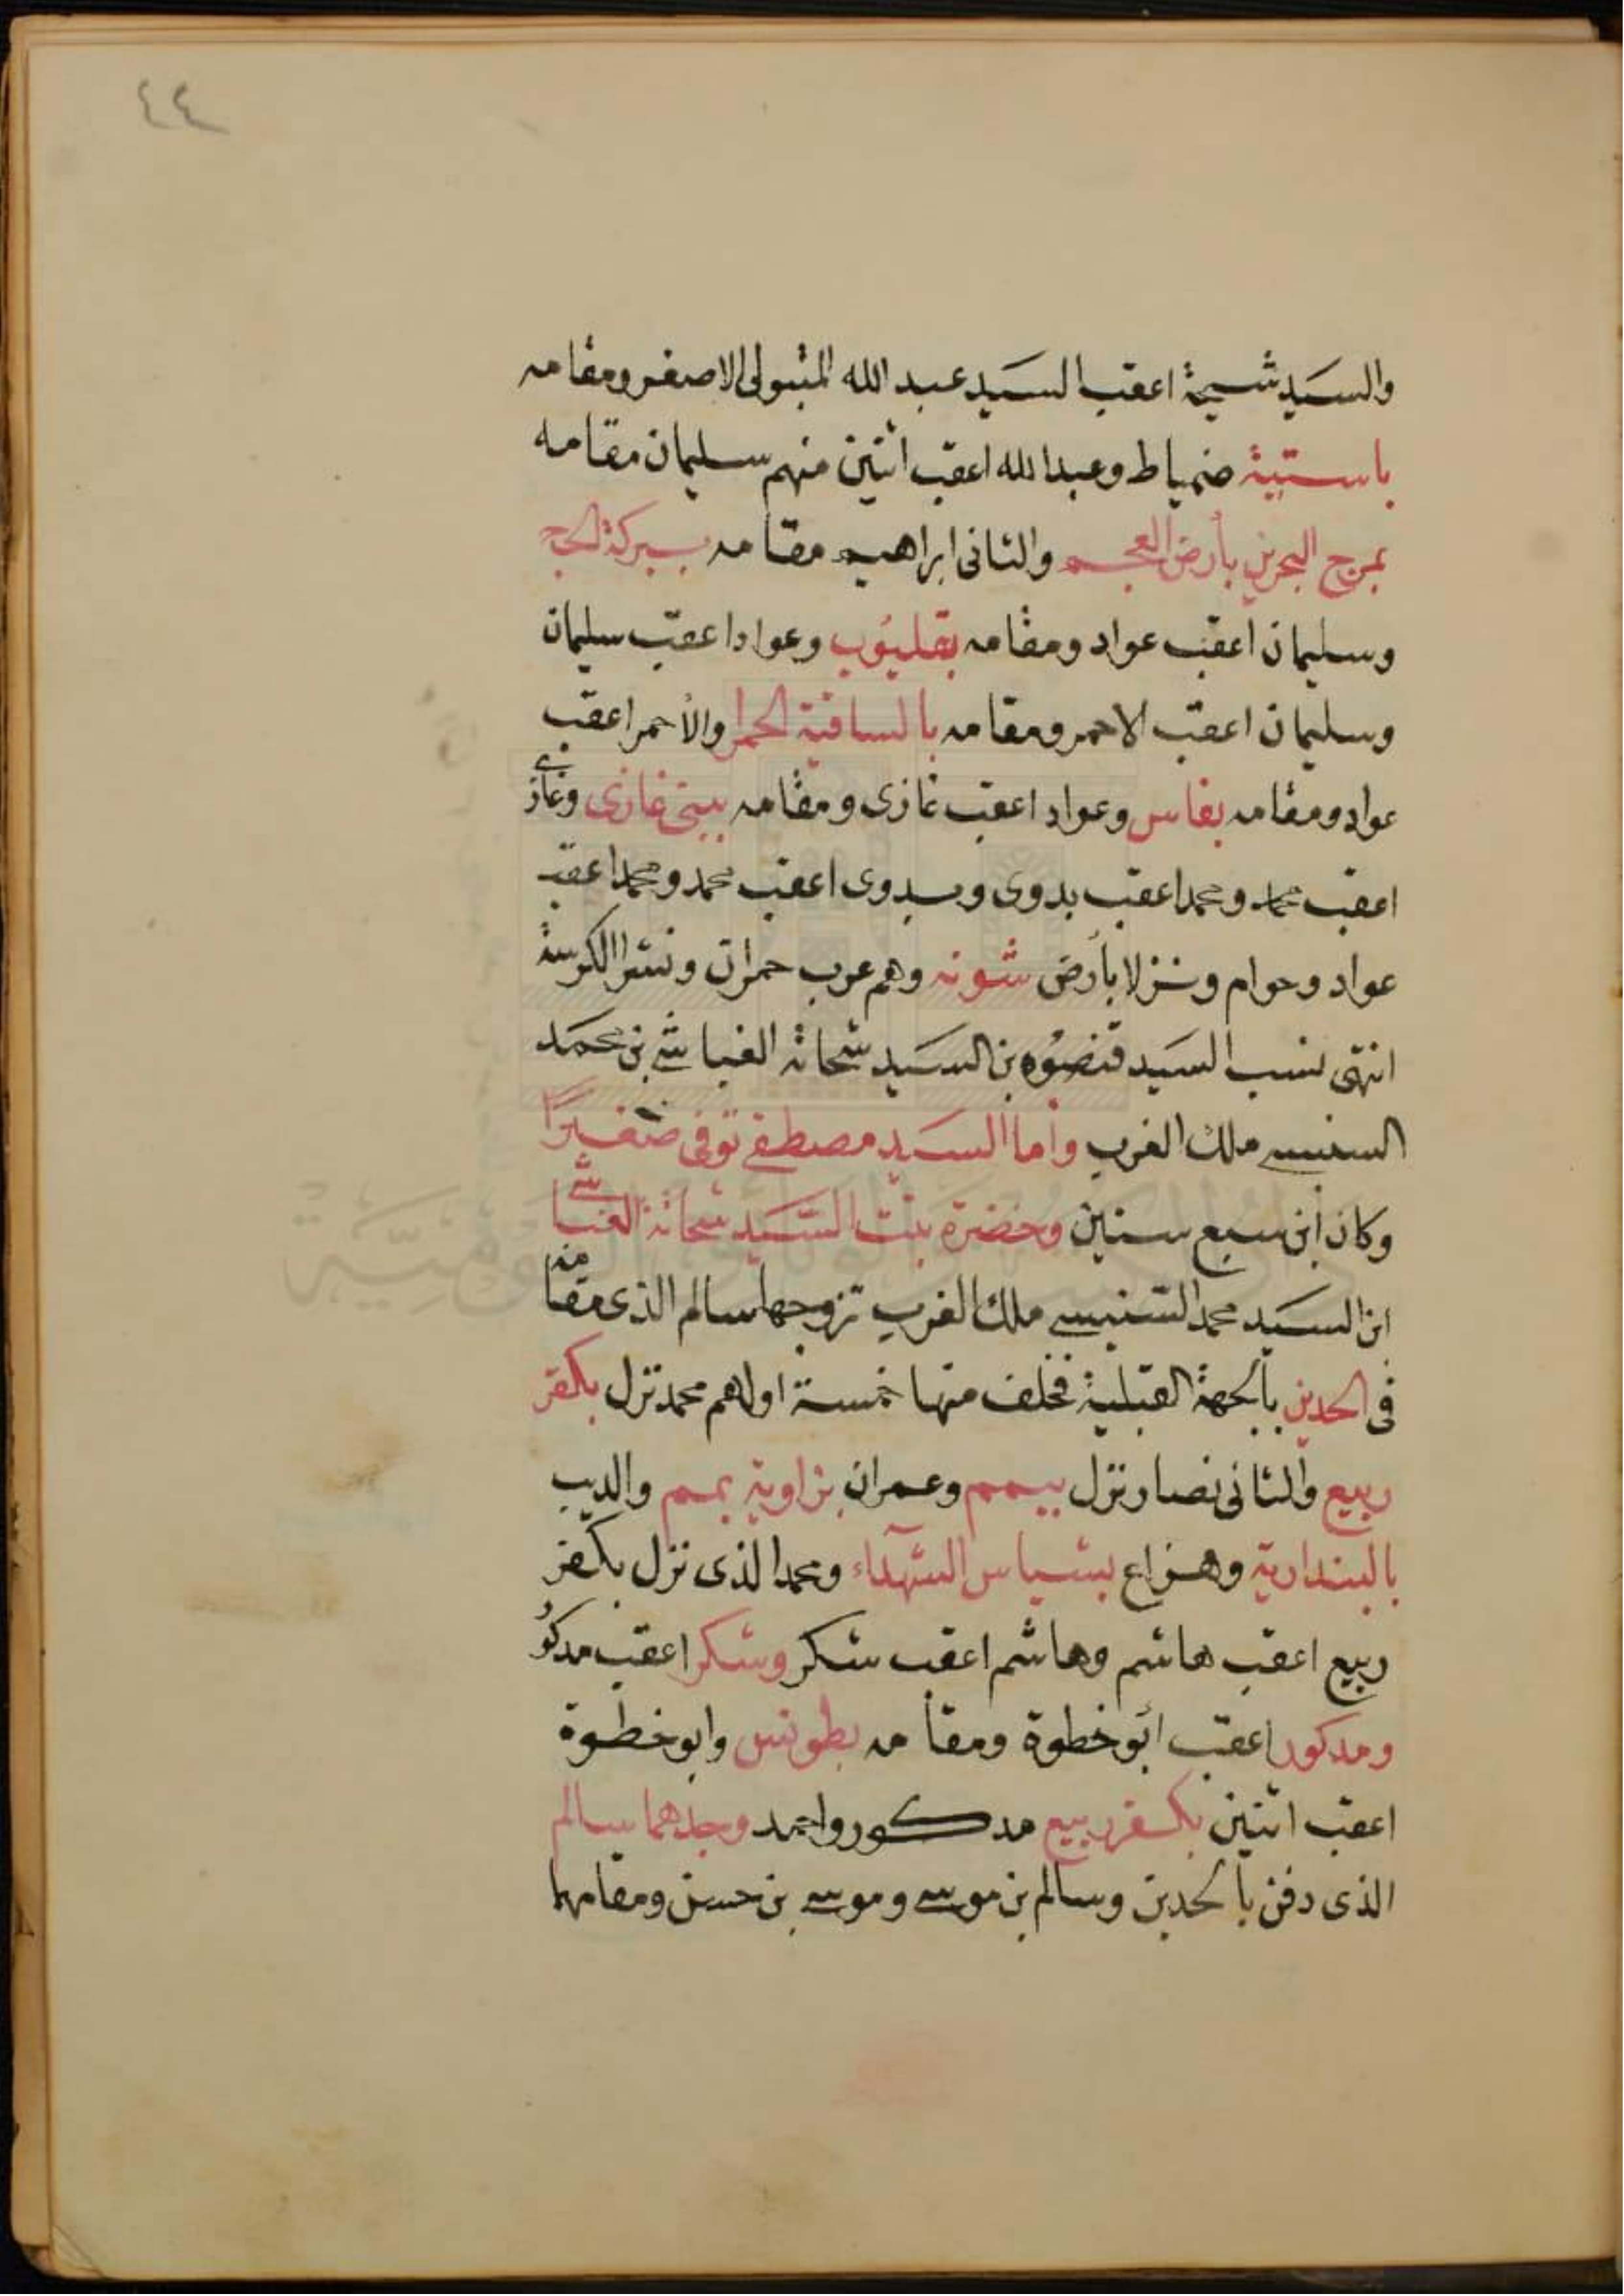 ٤٤
والسيد شيحة اعقب السيد عبد الله المتبولى الاصغر ومقامه
باستيتة ضمياط وعبدالله اعقب اثنين منهم سليمان مقامه
بمرج البحرين بأرض العجم والثانى ابراهيم مقامه ببركة الحج
وسليمان اعقب عواد ومقامه بقليوب وعواد اعقب سليمان
وسليمان اعقب الاحمر ومقامه بالساقية الحمرا والأحمر اعقب
عواد ومقامه بفاس وعواد اعقب غازى ومقامه ببنى غازى وغازى
اعقب محمد ومحمد اعقب بدوى وبدوى اعقب محمد ومحمد اعقب
عواد وحوام ونزلا بأرض شونه وهم عرب حمران
انتهى نسب السيد قنصوه بن السيد شحاته الغباشى بن محمد
السنبسى ملك الغرب وأما السيد مصطفى توفى صغيرًا
وكان أبن سبع سنين وحضرة بنت السيد شحاتة الغباشى
ابن السيد محمد السنبسى ملك الغرب تزوجها سالم الذى مقامه
فى الحدين بألجهة القبلية فخلف منها خمسة اولهم محمد نزل بكفر
ربيع والثانى نصار نزل ببمم وعمران بزاوية بمم والديب
بالبندارية وهزاع بشباس الشهداء ومحمد الذى نزل بكفر
ربيع اعقب هاشم وهاشم اعقب شكر وشكر اعقب مدكور
ومدكور اعقب أبو خطوة ومقامه بطونس وابو خطوة
اعقب اثنين بكفر ربيع مدكور واحمد وجدهما سالم
الذى دفن بألحدين وسالم بن موسى وموسى بن حسن ومقامهما